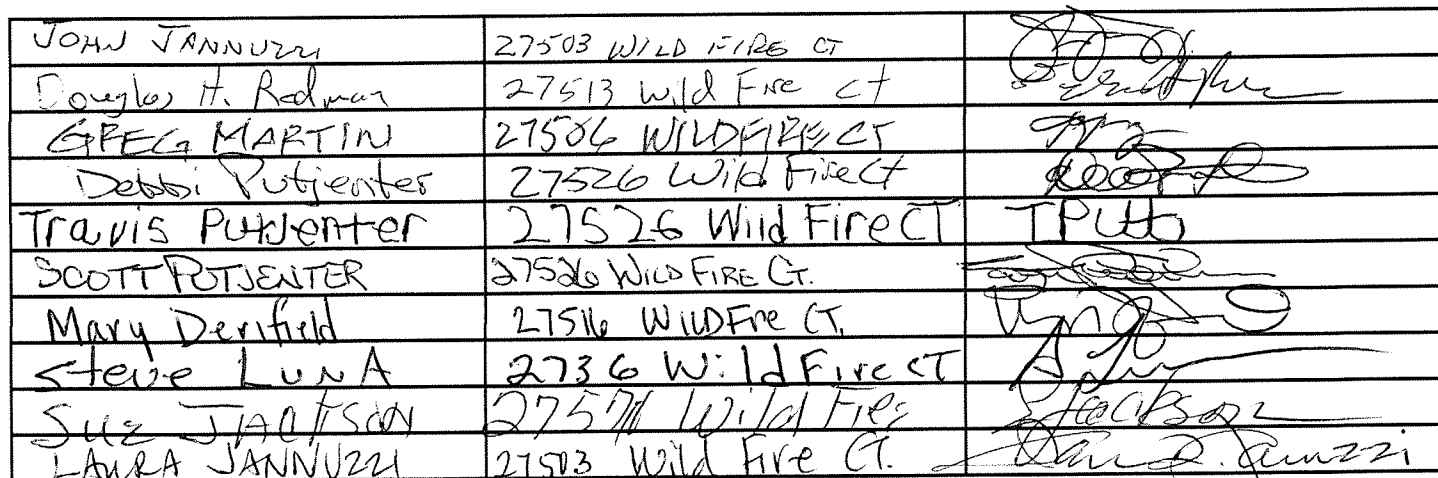 JOHN JANNUZZI 27503 WILD FIRE CT
Douglas H. Redman 27513 Wild Fire Ct
GREG MARTIN 27506 WILDFIRE CT
Debbi Putjenter 27526 Wild Fire Ct
Travis Putjenter 27526 Wild Fire CT TPutt
SCOTT PUTJENTER 27526 WILD FIRE CT.
Mary Derifield 27516 WILDFire CT.
Steve LUNA 2736 Wild Fire CT
SUZ JACKSON Wild Fire SJackson
LAURA JANNUZZI 27503 Wild Fire Ct. Jannuzzi